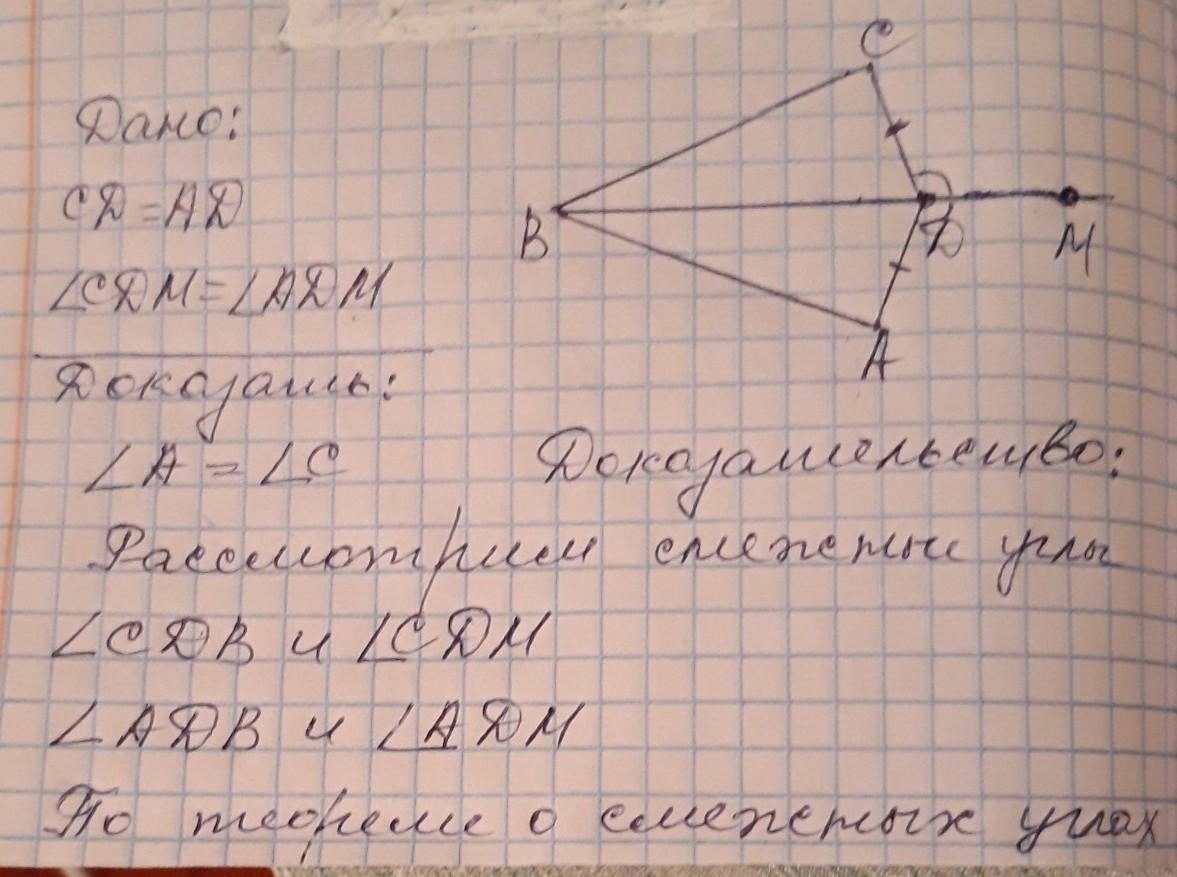 C
Дано:
CD=AD
B
D
M
∠CDM=∠ADM
A
Доказать:
∠A=∠C
Доказательство:
Рассмотрим смежные углы
∠CDB и ∠CDM
∠ADB и ∠ADM
По теореме о смежных углах